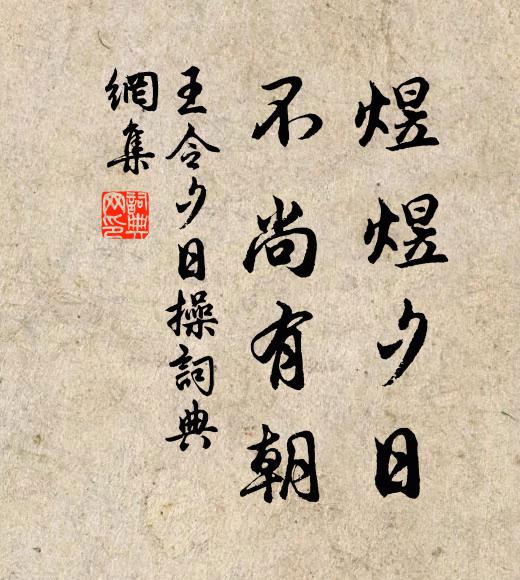 煜煜夕日
不尚有朝
王令夕日操詞典
網集
詞典
网印